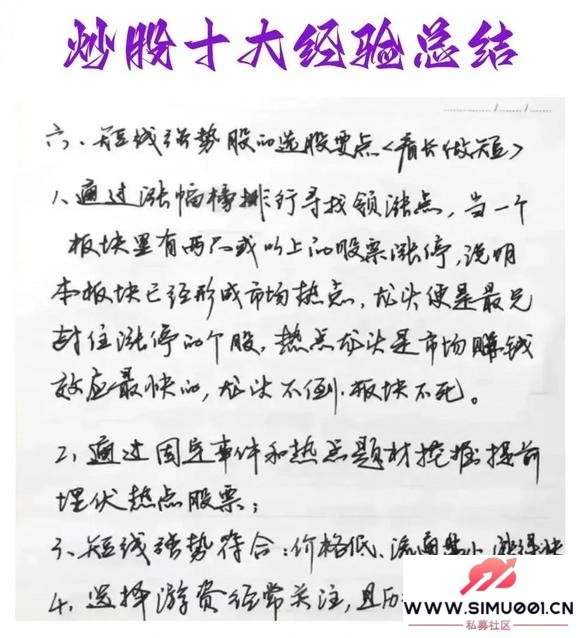 炒股十大经验总结
六、短线强势股的选股要点<看长做短>
1、通过涨幅榜排行寻找领涨点，当一个
板块里有两只或以上的股票涨停，说明
本板块已经形成市场热点，龙头便是最先
封住涨停的个股，热点龙头是市场赚钱
效应最快的，龙头不倒，板块不死。
2、通过固定事件和热点题材挖掘提前
埋伏热点股票；
3、短线强势符合：价格低、流通盘小、涨得快
4、选择游资经常关注，且历
WWW.SIMU001.CN
私募社区